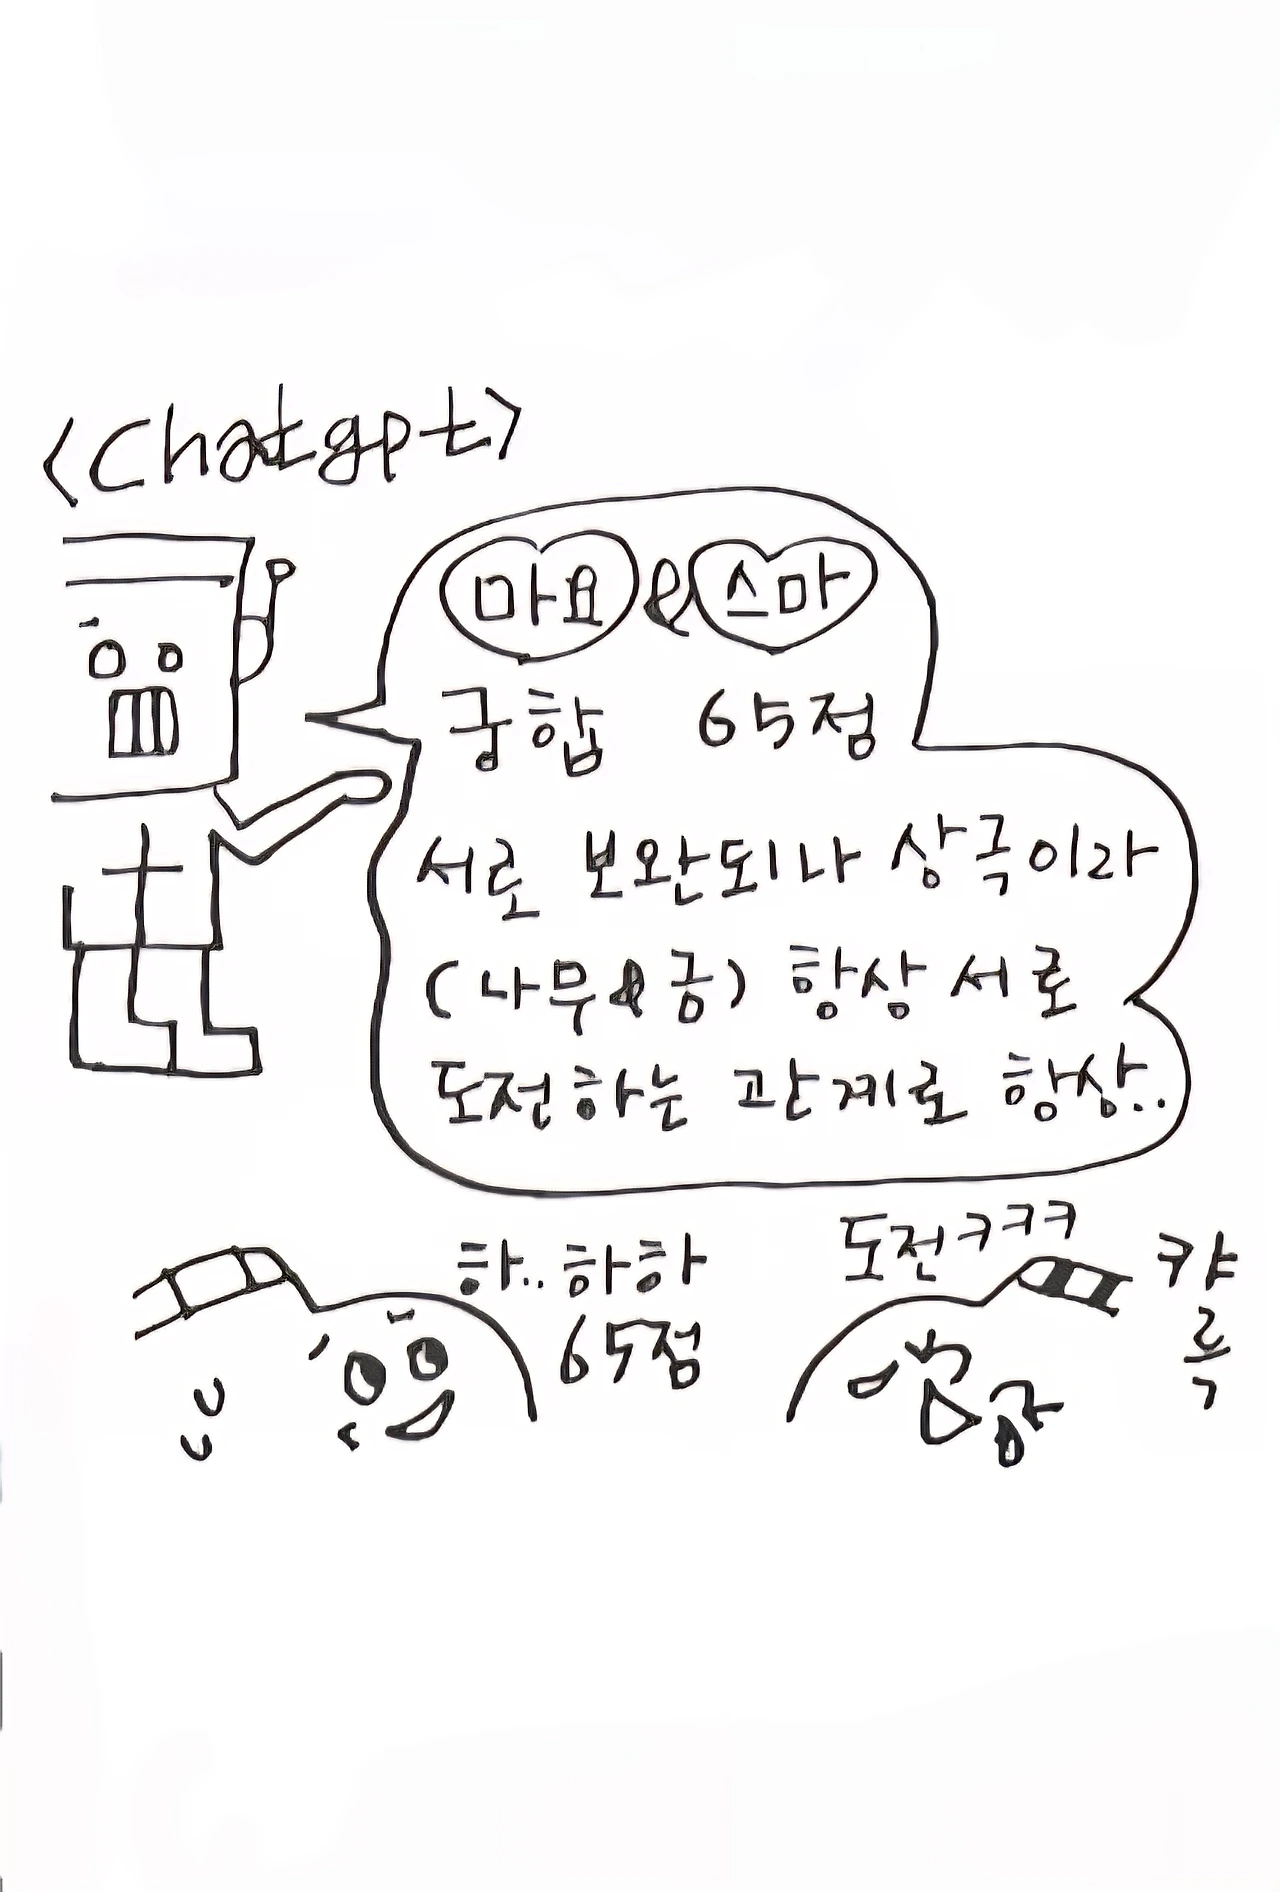 <Chatgpt>
마요 & 스마
궁합 65점
서로 보완되나 상극이라
(나무&금) 항상 서로
도전하는 관계로 항상..
하.. 하하
65점
도전ㅋㅋㅋ
캬
르
ㄱ